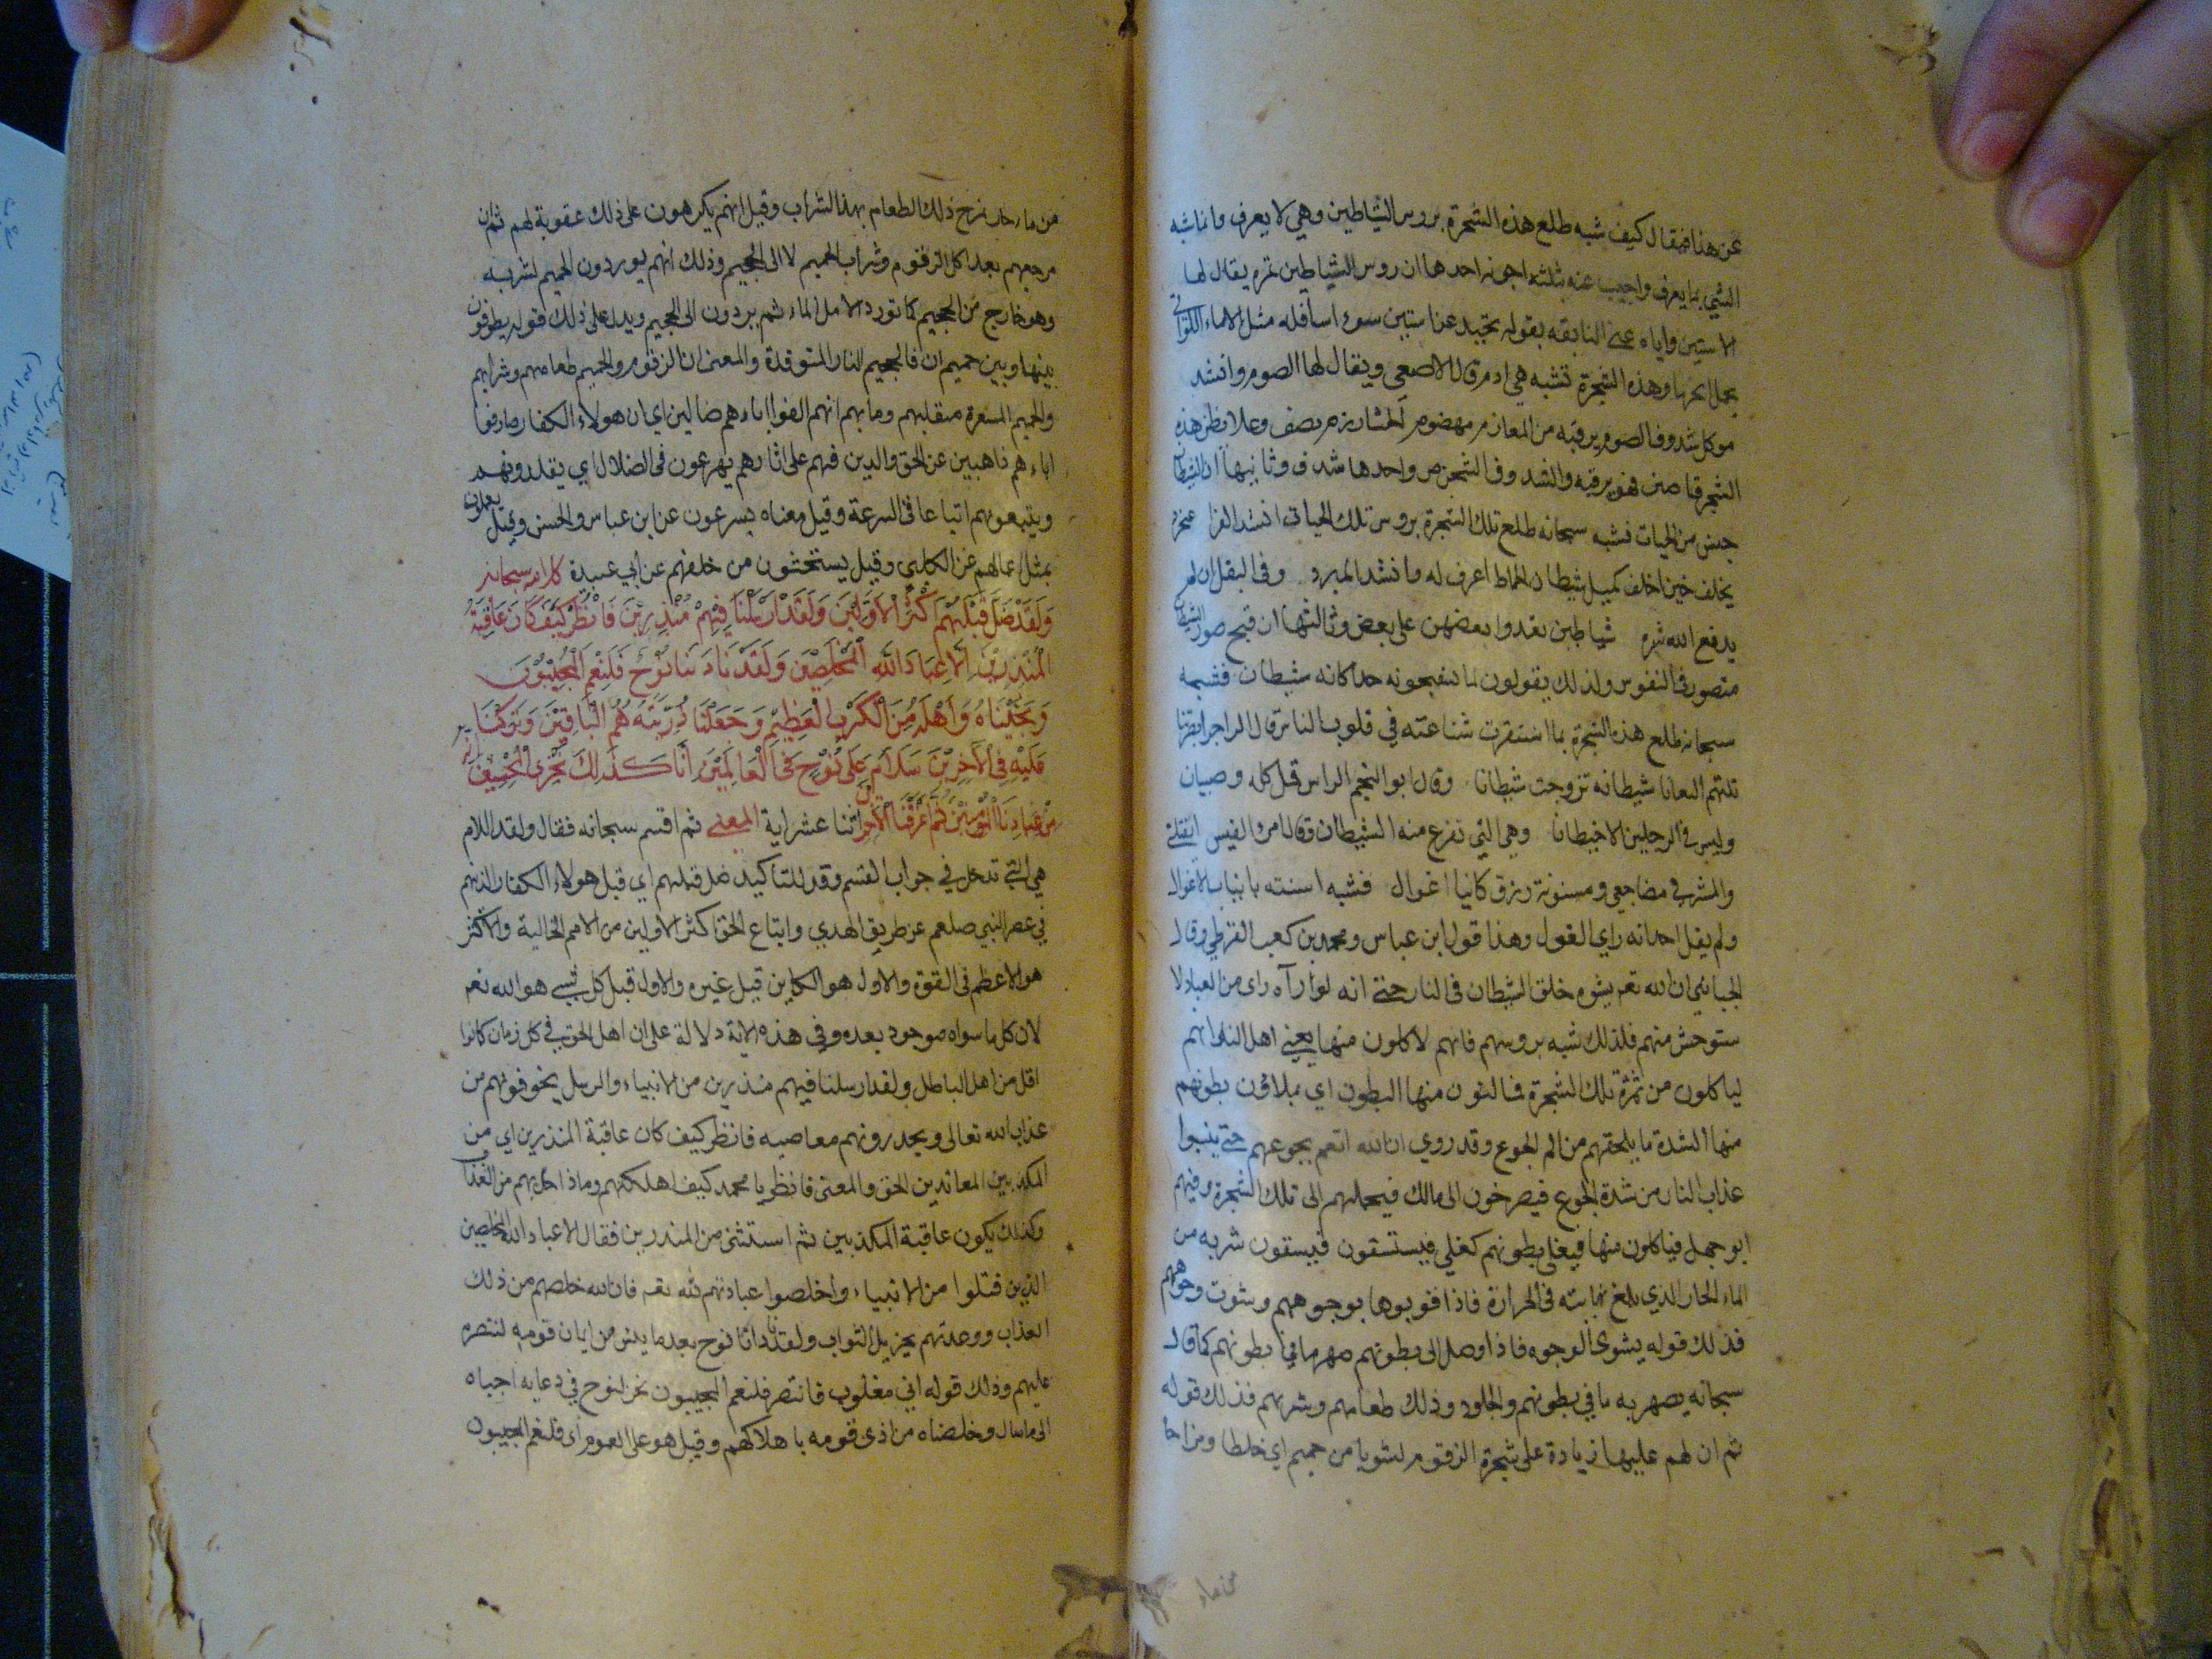 عن هذا فيقال كيف شبه طلع هذه الشجرة بروس الشياطين وهي لا يعرف وانما شبه
الشي بما يعرف واجيب عنه بثلثة اجوبة احدها ان روس الشياطين ثمرة يقال لها
الاستين واياه عني النابغة بقوله تحيد عن استين سود اسافله مثل الاماء اللواتي
وهذه الشجرة تشبه بني ادم قال الاصمعي ويقال لها الصوم وانشد
موكل شدوف الصوم يرقبه من المعازم مهضوم الحشا زرم يصف وعلا يظن هذه
الشجر قناصين فهو يرقبه والشدوف الشخوص واحدها شدف وثانيها ان الشيطان
جنس من الحيات فشبه سبحانه طلع تلك الشجرة بروس تلك الحيات انشد الفرا عنجرد
يحلف حين احلف كمثل شيطان الحماط اعرف له وانشد المبرد وفي البقل ان لم
يدفع الله شره شياطين يعدوا بعضهن على بعض وثالثها ان قبح صور الشيطان
متصور في النفوس ولذلك يقولون لما يستقبحونه جدا كانه شيطان فشبه
سبحانه طلع هذه الشجرة بما استقرت شناعته في قلوب الناس قال الراجز ابصرتها
تلتهم الثعبانا شيطانه تزوجت شيطانا وقال ابو النجم الراس قمل كله وصيبان
وليس في الرجلين الا خيطان وهي التي تفزع منه الشيطان وقال امرؤ القيس ايقتلني
والمشرفي مضاجعي ومسنونة زرق كانياب اغوال فشبه اسنته بانياب الاغوال
ولم يقل احد انه راي الغول وهذا قول ابن عباس ومحمد بن كعب القرظي وقال
الجبائي ان الله تعم يشوه خلق الشيطان في النار حتى انه لو راه راى من العباد لا
ستوحش منهم فلذلك شبه بروسهم فانهم لاكلون منها يعني اهل النار انهم
لياكلون من ثمرة تلك الشجرة فمالئون منها البطون اي يملاؤن بطونهم
منها الشدة ما يلحقهم من الم الجوع وقد روي ان الله تعم يجوعهم حتى ينسوا
عذاب النار من شدة الجوع فيصرخون الى مالك فيحملهم الى تلك الشجرة وفيهم
ابو جهل فياكلون منها فيغلي بطونهم كغلي فيستسقون فيسقون شربه من
الماء الحار الذي بلغ نهايته في الحرارة فاذا قربوها بوجوههم وشوت وجوههم
فذلك قوله يشوى الوجوه فاذا وصل الى بطونهم صهر ما في بطونهم كما قال
سبحانه يصهر به ما في بطونهم والجلود وذلك طعامهم وشربهم فذلك قوله
ثم ان لهم عليها زيادة على شجرة الزقوم لشوبا من حميم اي خلطا ومزاجا
من ماء
من ماء حار يمزج ذلك الطعام بهذا الشراب وقيل انهم يكرهون على ذلك عقوبة لهم ثم ان
مرجعهم بعد اكل الزقوم وشراب الحميم لا الى الجحيم وذلك انهم يوردون الحميم لشربه
وهو خارج من الجحيم كما تورد الابل الماء ثم يردون الى الجحيم ويدل على ذلك قوله يطوفون
بينها وبين حميم ان فالجحيم النار المتوقدة والمعنى ان الزقوم والحميم طعامهم وشرابهم
والجحيم المسعرة منقلبهم ومابهم انهم الفوا اباءهم ضالين اي ان هولاء الكفار صادفوا
اباءهم ذاهبين عن الحق والدين فهم على اثارهم يهرعون في الضلال اي يقلدونهم
ويتبعونهم اتباعا في السرعة وقيل معناه يسرعون عن ابن عباس والحسن وقيل يعملون
بمثل اعمالهم عن الكلبي وقيل يستحثون من خلفهم عن ابي عبيدة كلامه سبحانه
وَلَقَدْ ضَلَّ قَبْلَهُمْ اَكْثَرُ الْاَوَّلِينَ وَلَقَدْ اَرْسَلْنَا فِيهِمْ مُنْذِرِينَ فَانْظُرْ كَيْفَ كَانَ عَاقِبَةُ
الْمُنْذَرِينَ اِلَّا عِبَادَ اللّٰهِ الْمُخْلَصِينَ وَلَقَدْ نَادَينَا نُوحٌ فَلَنِعْمَ الْمُجِيبُونَ
وَنَجَّيْنَاهُ وَاَهْلَهُ مِنَ الْكَرْبِ الْعَظِيمِ وَجَعَلْنَا ذُرِّيَّتَهُ هُمُ الْبَاقِينَ وَتَرَكْنَا
عَلَيْهِ فِي الْآخِرِينَ سَلَامٌ عَلَى نُوحٍ فِي الْعَالَمِينَ اِنَّا كَذٰلِكَ نَجْزِي الْمُحْسِنِينَ اِنَّهُ
مِنْ عِبَادِنَا الْمُؤْمِنِينَ ثُمَّ اَغْرَقْنَا الْآخَرِينَ اثنا عشر اية المعنى ثم اقسم سبحانه فقال ولقد اللام
هي التي تدخل في جواب القسم وقد للتاكيد ضل قبلهم اي قبل هولاء الكفار الذينهم
في عصر النبي صلعم عن طريق الهدى واتباع الحق اكثر الاولين من الامم الخالية والاكثر
هو الاعظم في القوة والاول هو الكاين قبل غيره والاول قبل كل شي هو الله تعم
لان كل ما سواه موجود بعده وفي هذه الاية دلالة على ان اهل الحق في كل زمان كانوا
اقل من اهل الباطل ولقد ارسلنا فيهم منذرين من الانبياء والرسل يخوفونهم من
عذاب الله تعالى ويحذرونهم معاصيه فانظر كيف كان عاقبة المنذرين اي من
المكذبين المعاندين للحق والمعنى فانظر يا محمد كيف اهلكتهم وماذا حل بهم من العذاب
وكذلك يكون عاقبة المكذبين ثم استثنى من المنذرين فقال الا عباد الله المخلصين
الذين قبلوا من الانبياء واخلصوا عبادتهم لله تعم فان الله خلصهم من ذلك
العذاب ووعدتهم بجزيل الثواب ولقد نادانا نوح بعد ما يئس من ايمان قومه لننصره
عليهم وذلك قوله اني مغلوب فانتصر فلنعم المجيبون نحن لنوح في دعايه اجبناه
الى ما سال وخلصناه من اذى قومه باهلاكهم وقيل هو على العموم اي فلنعم المجيبون